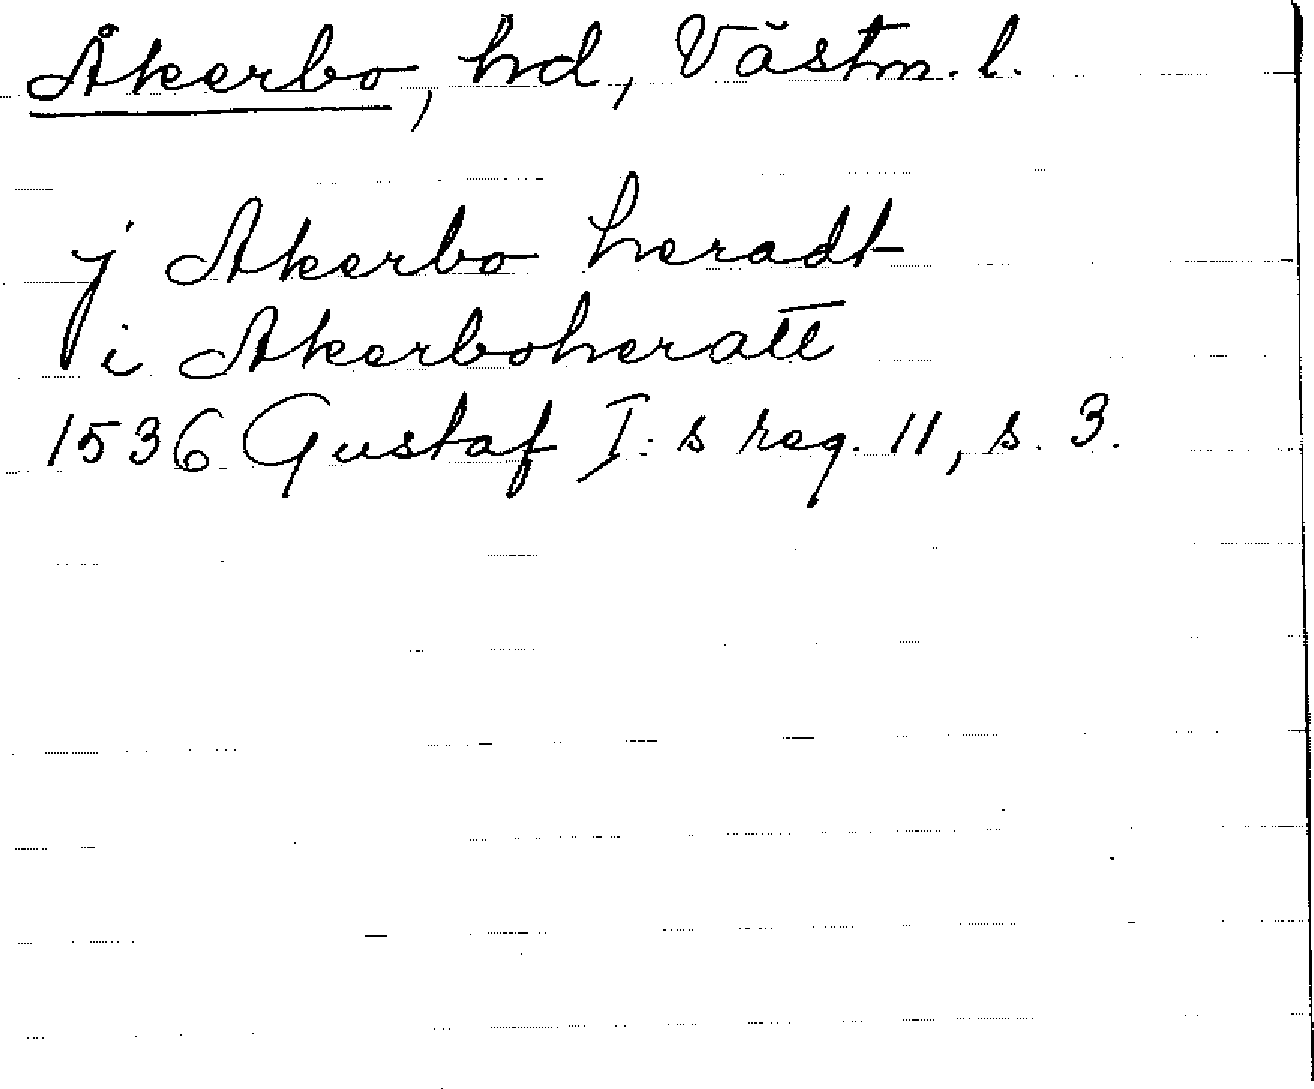 Åkerbo, hd, Västm. l.
j Akerbo heradt
i Akerboheratt
1536 Gustaf I:s reg. 11, s. 3.